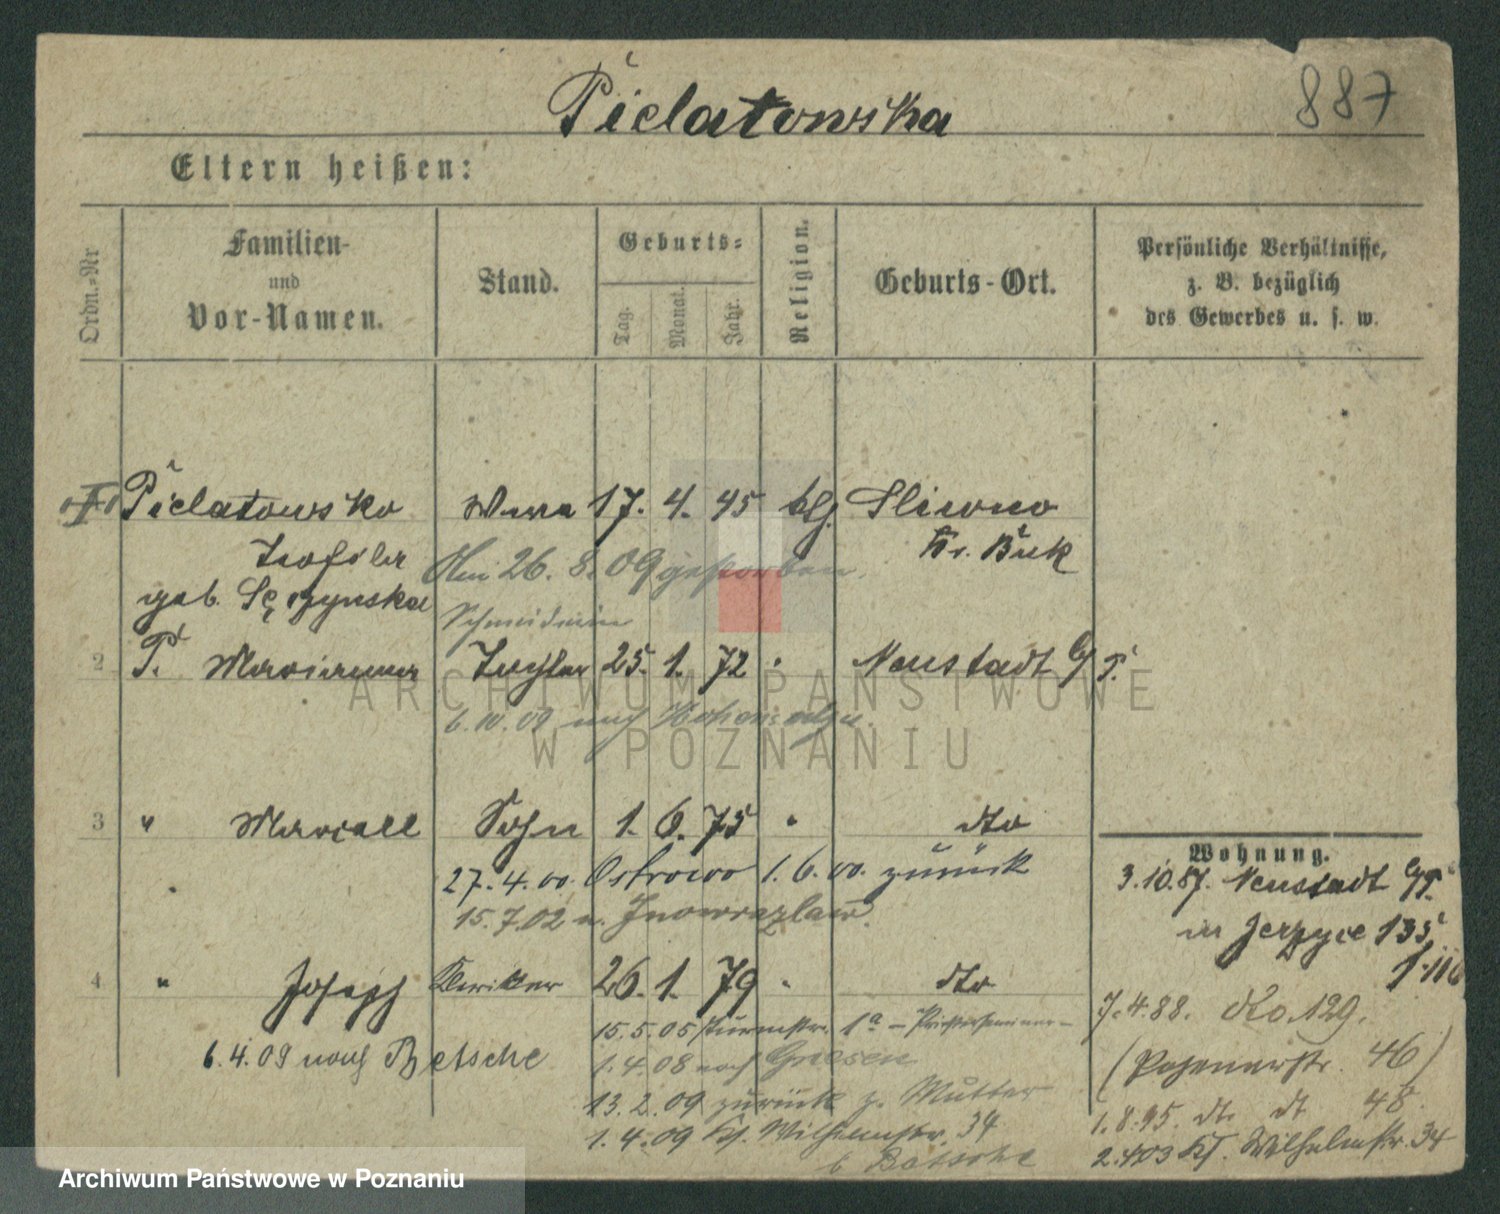 Pielatowska
887
Eltern heißen:
Ordn.-Nr
Familien-
und
Vor-Namen.
Stand.
Geburts-
Tag.
Monat.
Jahr.
Religion.
Geburts-Ort.
Persönliche Verhältnisse,
z. B. bezüglich
des Gewerbes u. s. w.
Pielatowska 17. 4. 45 kth. Sliwno
Kr. Buk
Am 26. 8. 09 gestorben.
geb.
2 P. Marianna Tochter 25. 1. 72 " Neustadt b/P.
6.10.09 nach Hohensalza.
3 " Marcell Sohn 1. 6. 75 " dto
27.4.00. Ostrowo 1.6.00. zurück
15.7.02 n. Inowrazlaw.
Wohnung.
3.10.87. Neustadt b/P.
in Jerzyce 135
4 " Joseph Kleriker 26. 1. 79 " dto
7.4.88. No 129.
15.5.05 1a - Priesterseminar-
6.4.09 nach Betsche
1.4.08 nach Gnesen
(Posenerstr. 46)
13.2.09 zurück z. Mutter
1.8.95. dto dt 48
1.4.09 Ks. Wilhelmstr. 34
2.4.03 Ks. Wilhelmstr. 34
Betsche
ARCHIWUM PAŃSTWOWE
W POZNANIU
Archiwum Państwowe w Poznaniu